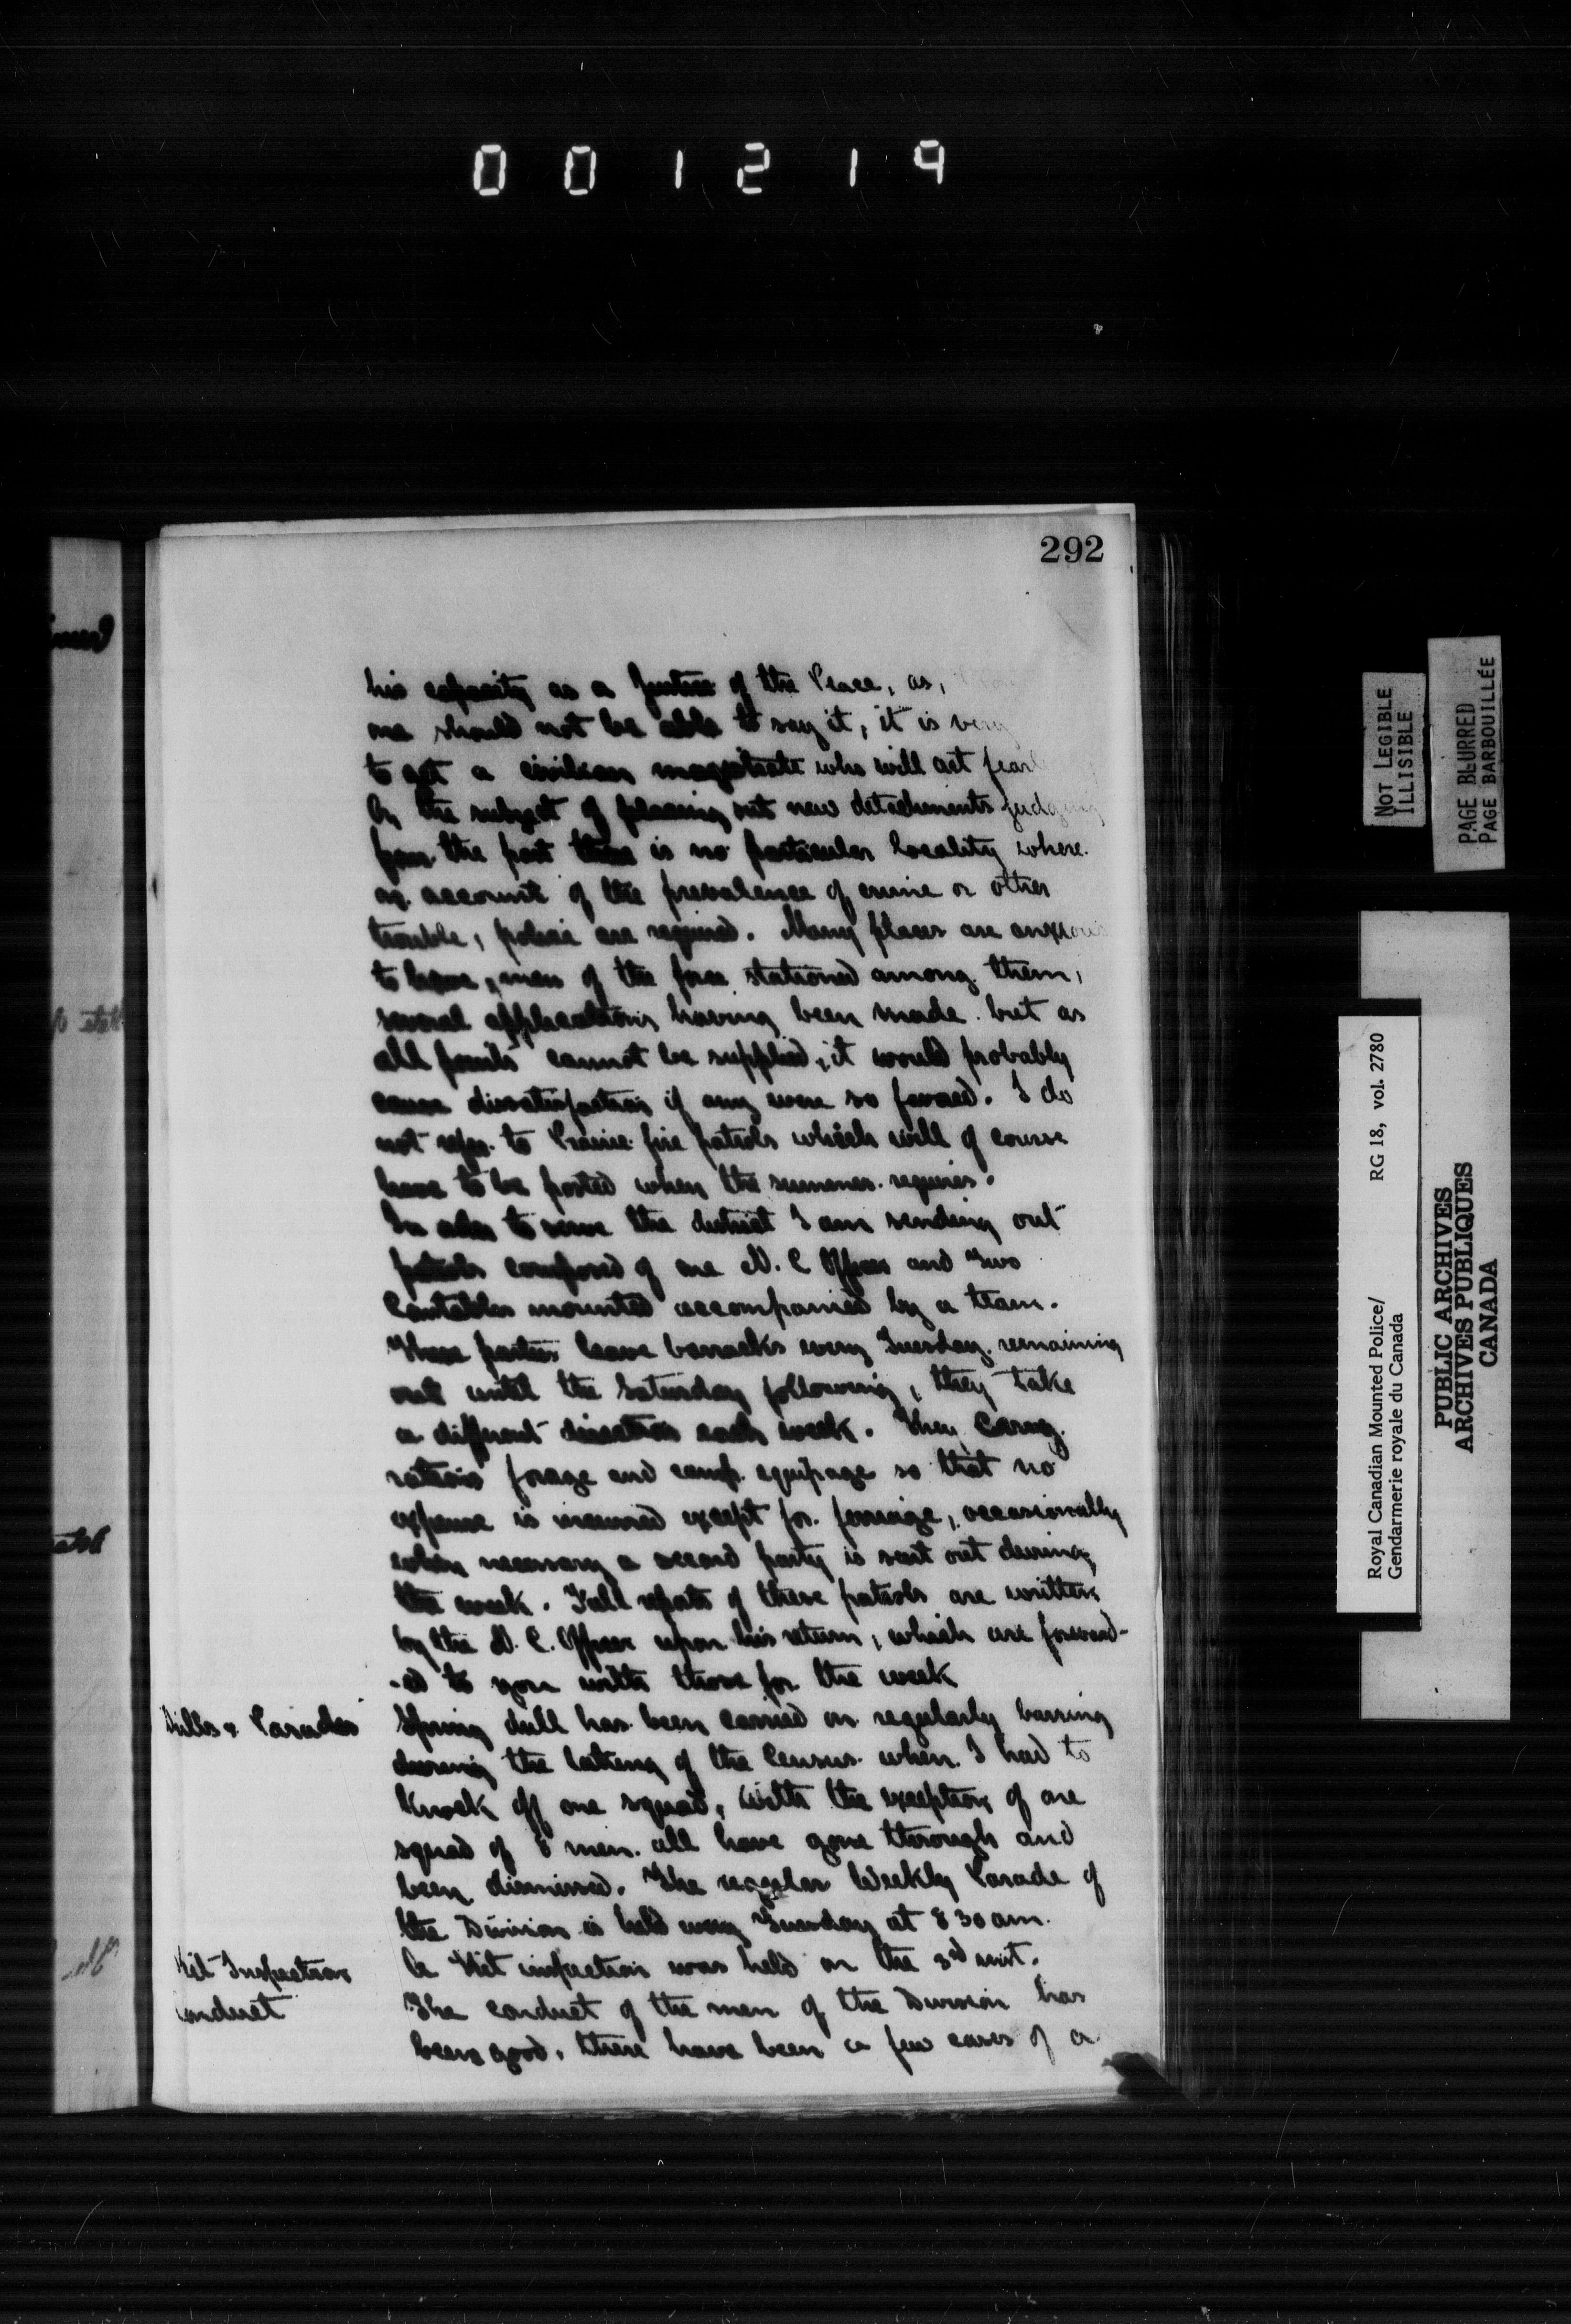 001219
292
his capacity as a Justice of the Peace, as,
one should not be able to say it, it is very
to get a civilian magistrate who will act
On the subject of placing out new detachments judging
from the past there is no particular locality where
on account of the prevalence of crime or other
trouble, police are required. Many places are anxious
to have men of the force stationed among them,
several applications having been made but as
all points cannot be supplied, it would probably
cause dissatisfaction if any were so favored. I do
not refer to Prairie fire patrols which will of course
have to be posted when the summer requires.
In order to serve the district I am sending out
patrols composed of one N. C. Officer and Two
Constables mounted accompanied by a team.
These parties leave barracks every Tuesday remaining
out until the Saturday following, they take
a different direction each week. They carry
rations forage and camp equipage so that no
expense is incurred except for ferriage, occasionally
when necessary a second party is sent out during
the week. Full reports of these patrols are written
by the N. C. Officer upon his return, which are forward-
-ed to you with those for the week
Drills & Parades Spring drill has been carried on regularly barring
during the taking of the Census when I had to
knock off one squad, with the exception of one
squad of 8 men all have gone through and
been dismissed. The regular Weekly Parade of
the Division is held every Tuesday at 8 30 am.
Kit Inspection A Kit inspection was held on the 3rd inst.
Conduct The conduct of the men of the Division has
been good, there have been a few cases of a
NOT LEGIBLE
ILLISIBLE
PAGE BLURRED
PAGE BARBOUILLÉE
Royal Canadian Mounted Police/ RG 18, vol. 2780
Gendarmerie royale du Canada
PUBLIC ARCHIVES
ARCHIVES PUBLIQUES
CANADA